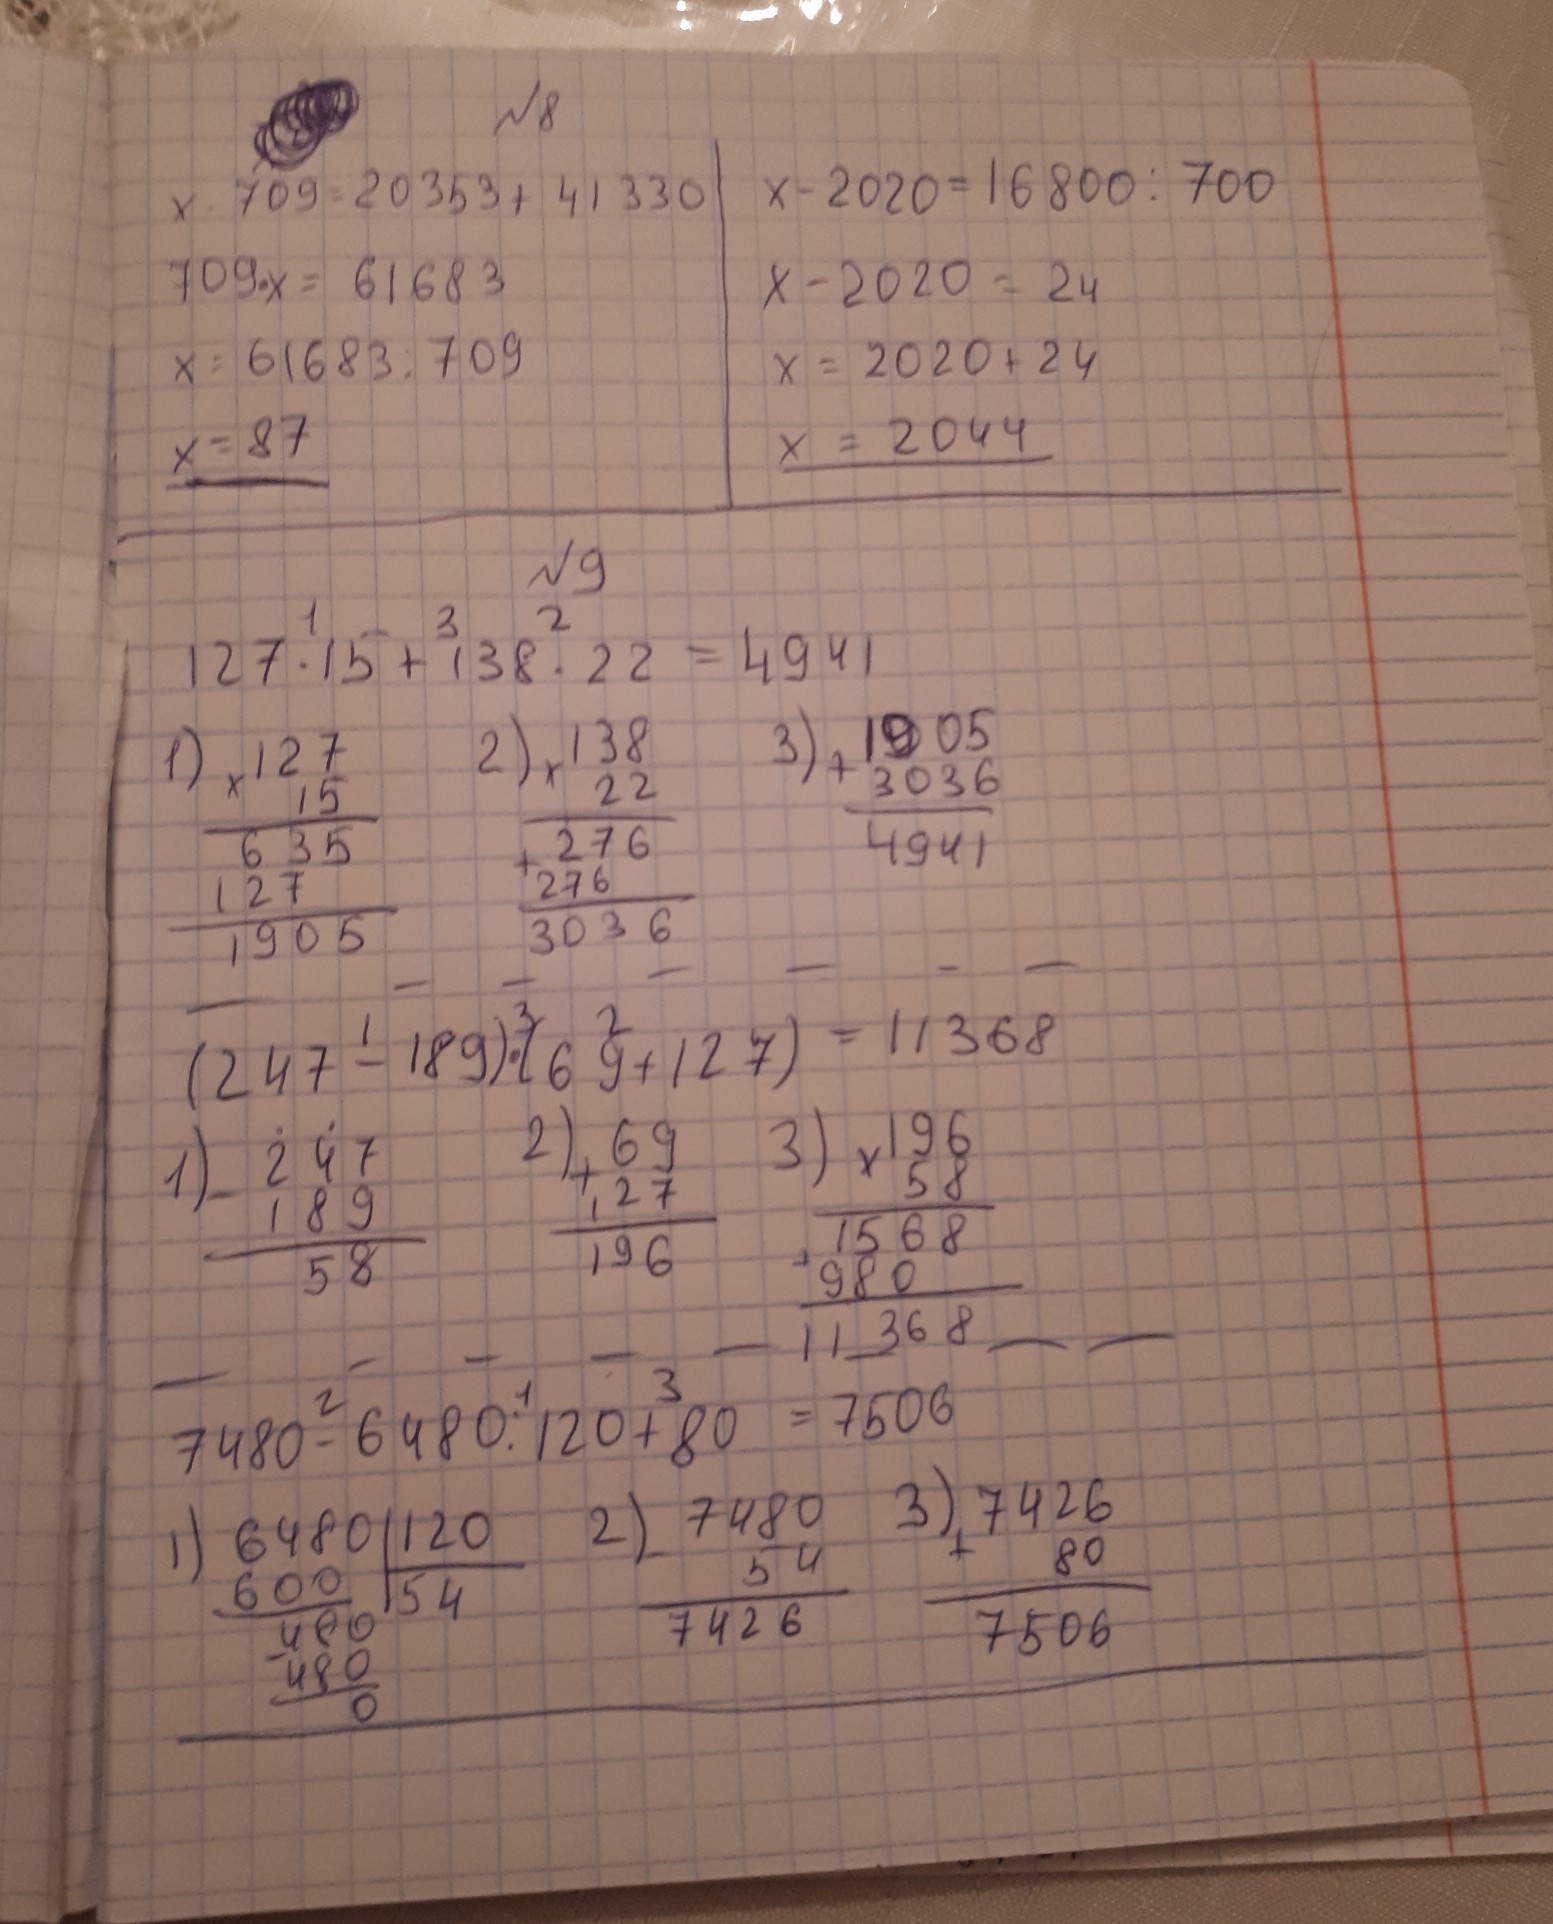 №8
x · 709 = 20353 + 41330
709·x = 61683
x = 61683 : 709
x = 87
x - 2020 = 16800 : 700
x - 2020 = 24
x = 2020 + 24
x = 2044
№9
1 3 2
127 · 15 + 138 · 22 = 4941
1) x 127
15
635
127
1905
2) x 138
22
+ 276
276
3036
3) + 1905
3036
4941
1 3 2
(247 - 189) · (69 + 127) = 11368
1) - 247
189
58
2) + 69
127
196
3) x 196
58
+ 1568
980
11368
2 1 3
7480 - 6480 : 120 + 80 = 7506
1) 6480 | 120
600 | 54
- 480
480
0
2) - 7480
54
7426
3) + 7426
80
7506